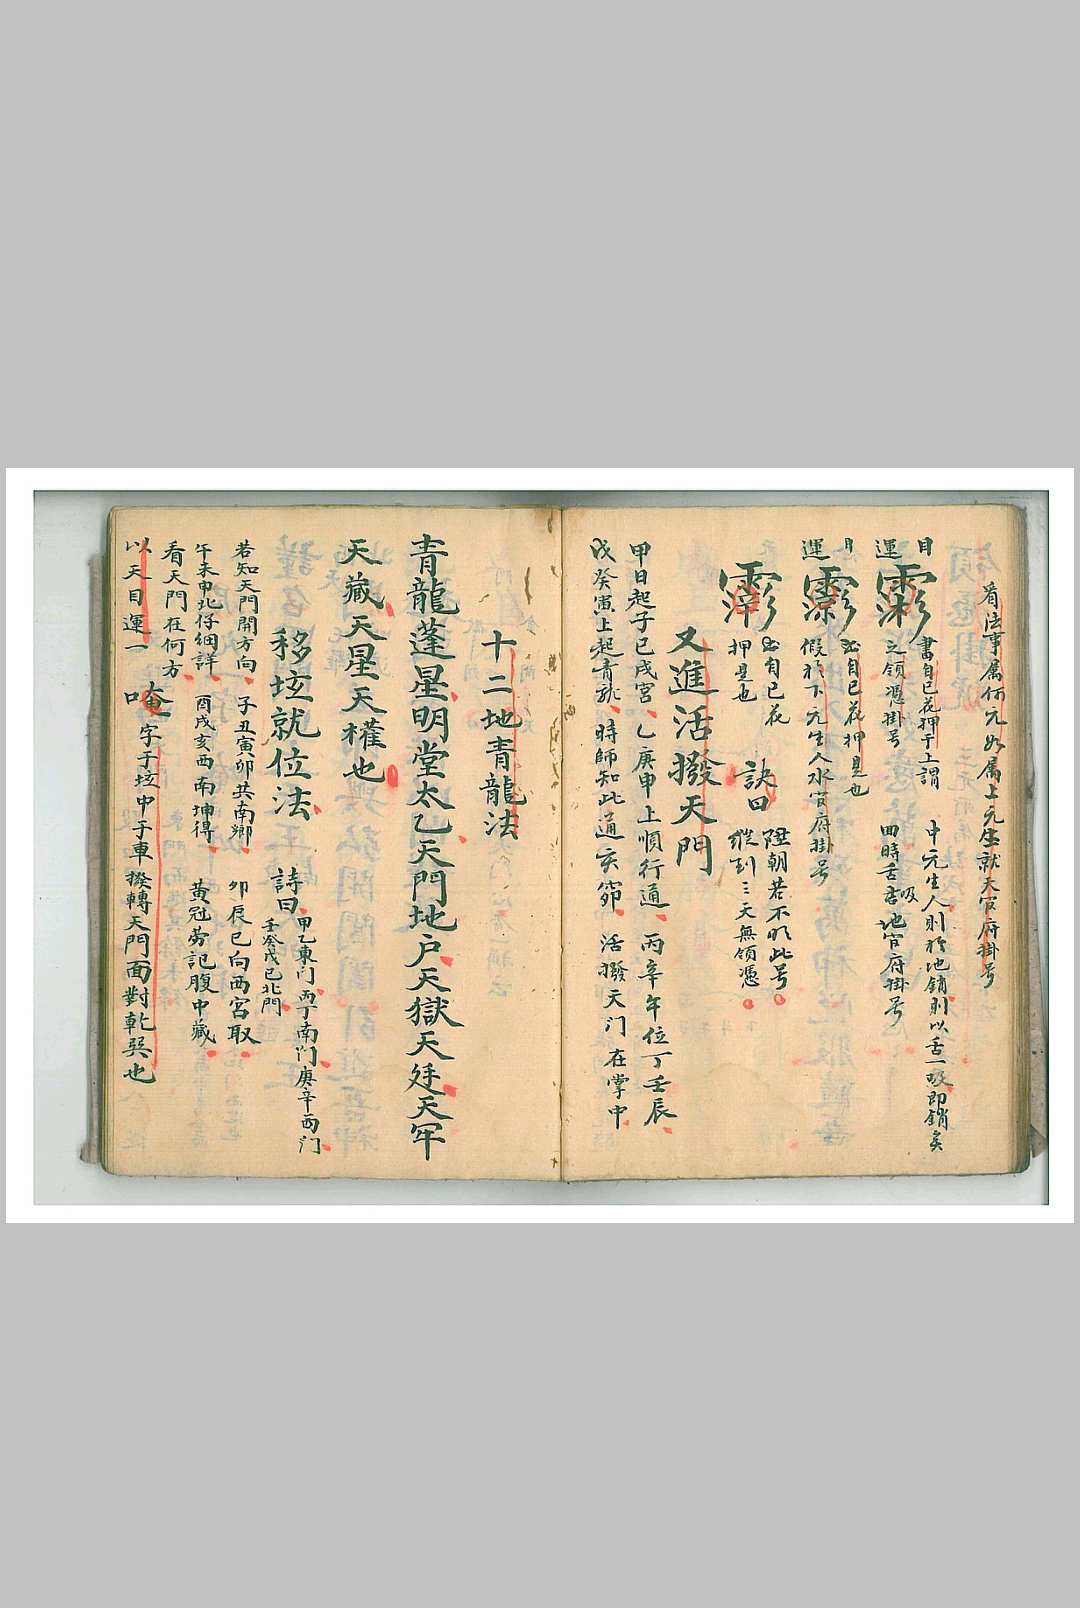 看法事属何元如属上元生就天官府掛号
目
運
書自己花押于上謂
之領憑掛号
中元生人則於地銷則以舌一吸即銷矣
四時舌吸地官府掛号
目
運
自己花押是也
假於下元生人水官府掛号
自己花
押是也
訣曰
陞朝若不明此号
縱到三天無領憑
又進活撥天門
甲日起子己戌宮乙庚申上順行道丙辛午位丁壬辰
戊癸寅上起青龍時師知此通玄節活撥天门在掌中
十二地青龍法
青龍蓬星明堂太乙天門地戶天獄天廷天牢
天藏天星天權也
移垓就位法
詩曰
甲乙東门丙丁南门庚辛西门
壬癸戊己北門
若知天門開方向子丑寅卯共南鄉卯辰巳向西宮取
午未申北仔細詳酉戌亥西南坤得黃冠勞記腹中藏
看天門在何方
以天目運一唵字于垓中手車撥轉天門面對乾巽也